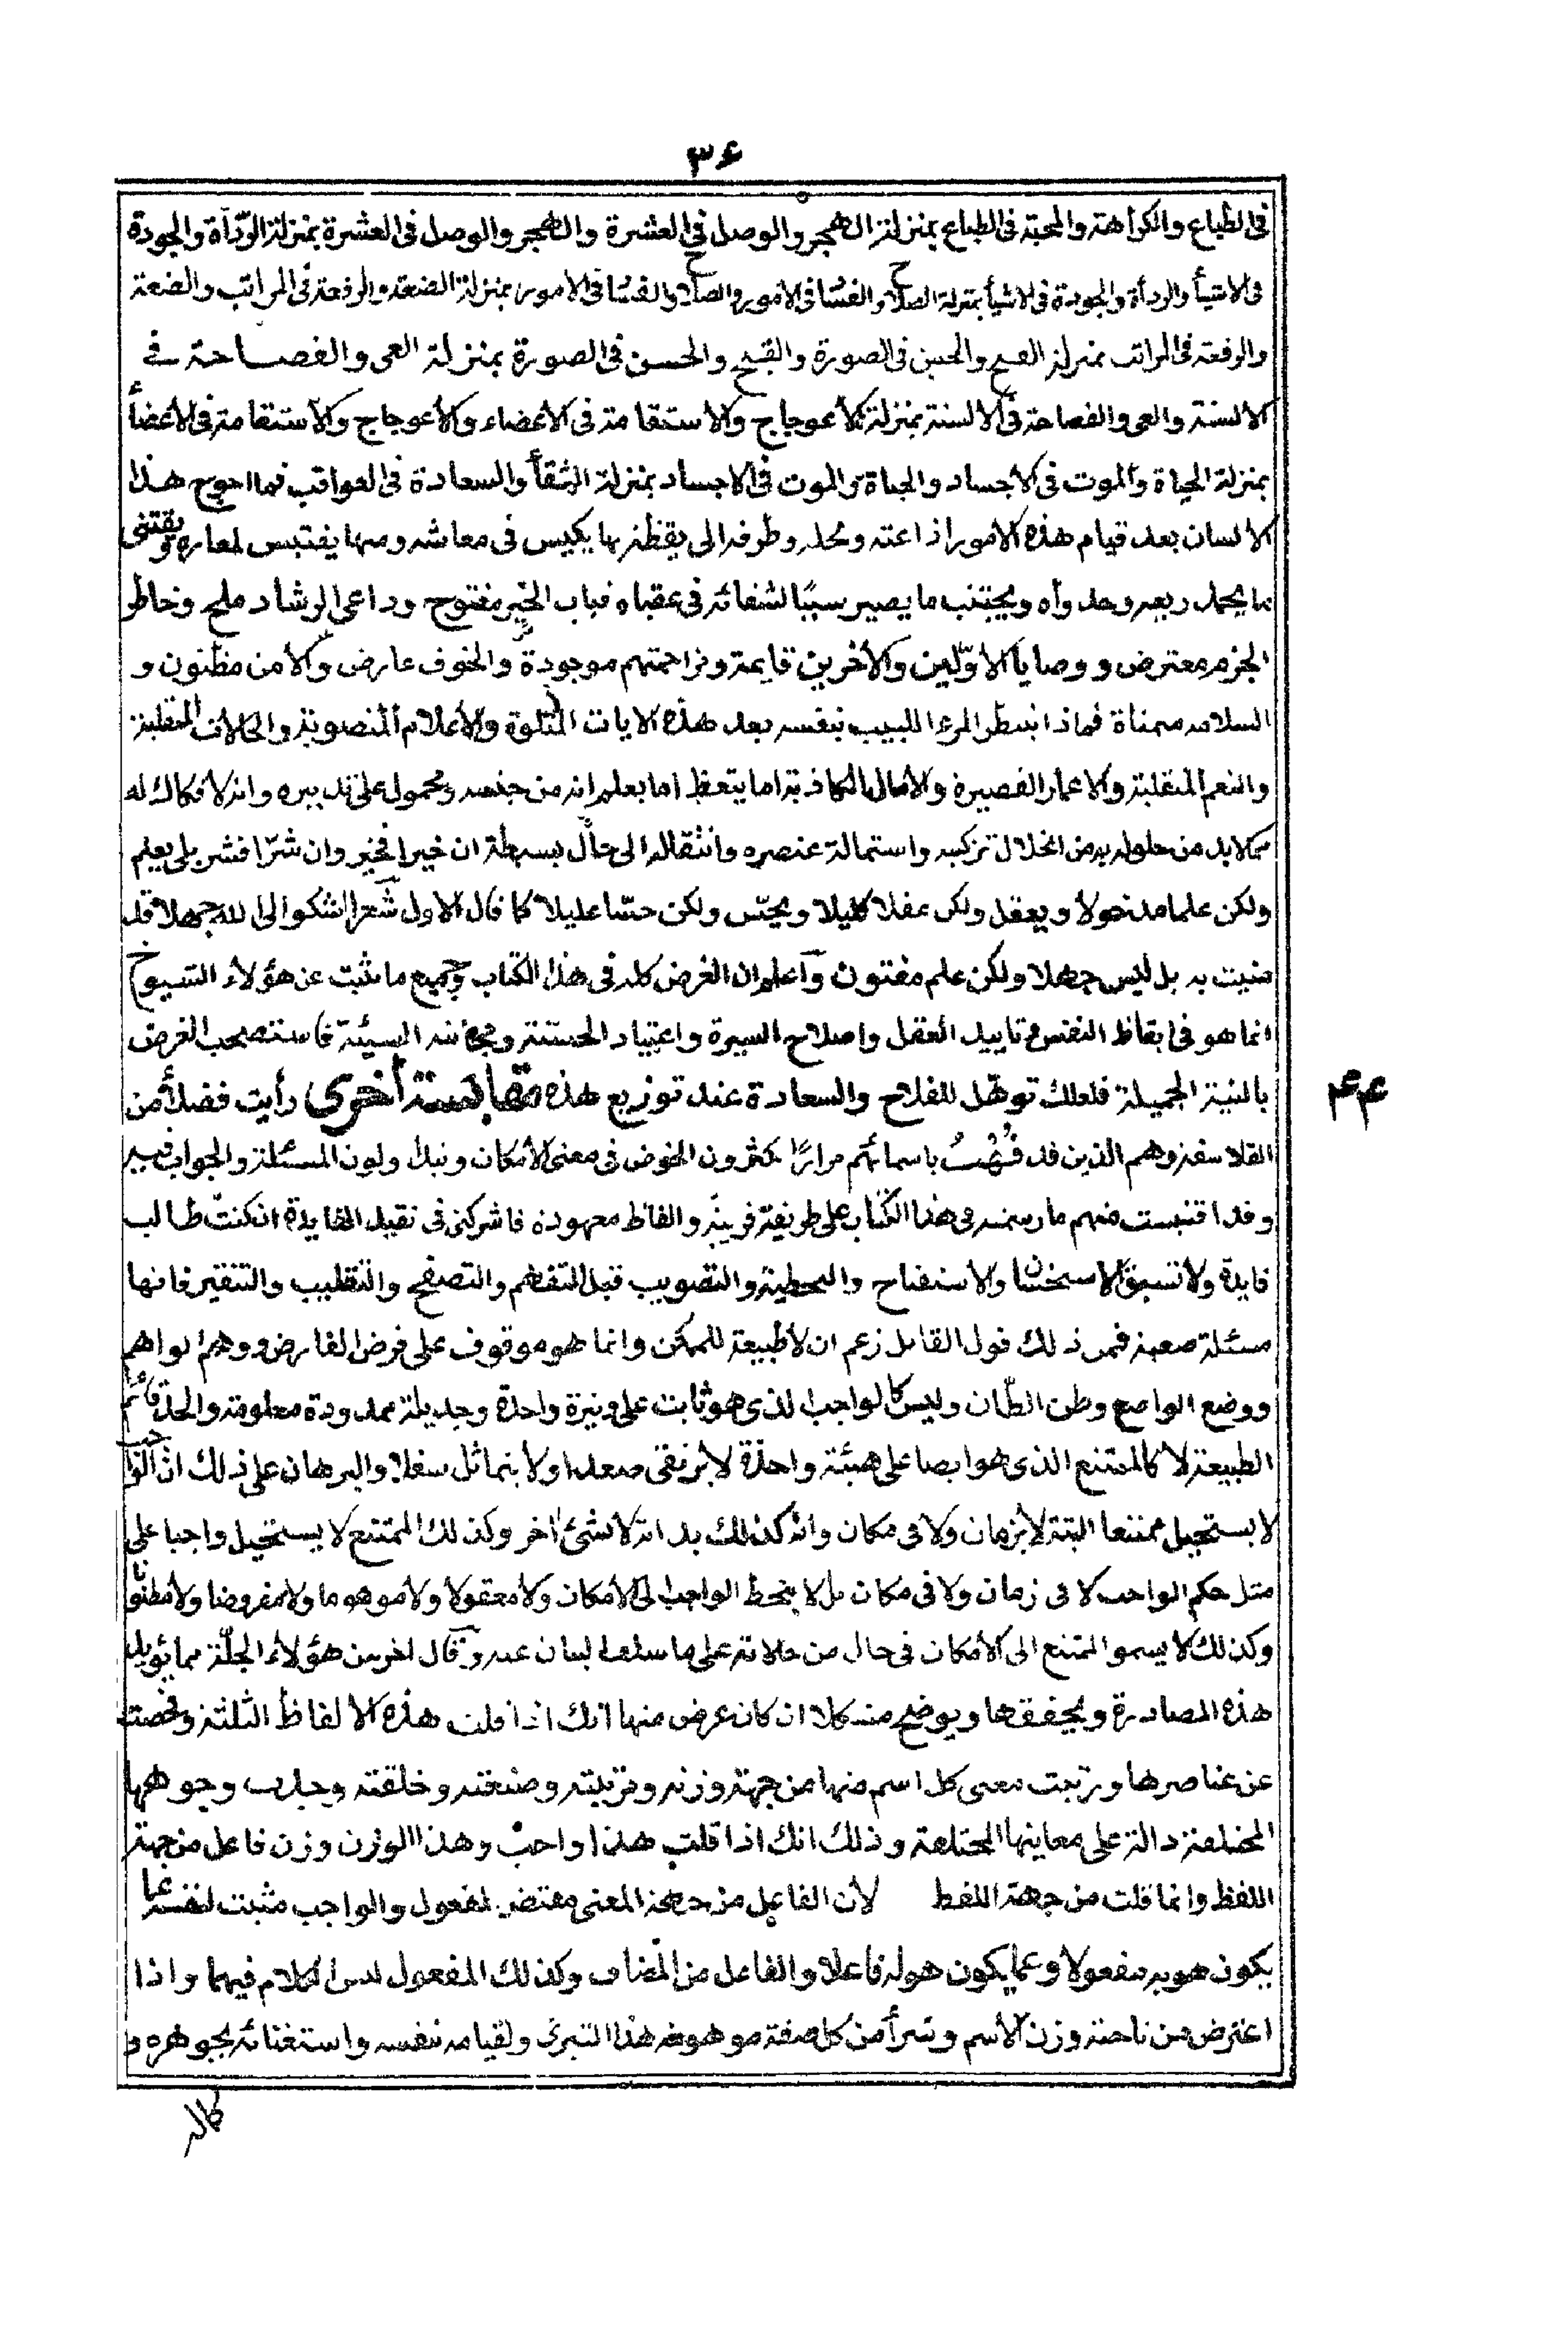 ٣٦
فى الطباع والكراهة والمحبة فى الطباع بمنزلة الهجر والوصل فى العشرة والهجر والوصل فى العشرة بمنزلة الردأة والجودة
فى الاشيأ والردأة والجودة فى الاشيأ بمنزلة الصلاح والفسا فى الامور والصلاح والفسا فى الامور بمنزلة الضعة والرفعة فى المراتب والضعة
والرفعة فى المراتب بمنزلة القبح والحسن فى الصورة والقبح والحسن فى الصورة بمنزلة العى والفصاحة فى
الالسنة والعى والفصاحة فى الالسنة بمنزلة الاعوجاج والاستقامة فى الاعضاء والاعوجاج والاستقامة فى الاعضأ
بمنزلة الحياة والموت فى الاجساد والحياة والموت فى الاجساد بمنزلة الشقأ والسعادة فى العواقب فما احوج هذا
الانسان بعد قيام هذه الامور اذاعته ومحله وظرفه الى يقظة بها يكيس فى معاشه ومنها يقتبس لمعاده ويقتنى
ما يحمد ريعه وجدواه ويجتنب ما يصير سببًا لشقائه فى عقباه فباب الخير مفتوح وداعى الرشاد ملح وخاطر
الحزم معترض ووصايا الاوّلين والآخرين قايمة ومزاحمتهم موجودة والخوف عارض والامن مظنون و
السلامة متمناة فماذا ينتظر المرء اللبيب بنفسه بعد هذه الايات المتلوة والاعلام المنصوبة والحالات المتقلبة
والنعم المتقلبة والاعمار القصيرة والامال الكاذبة اما يتعظ اما يعلم انه من جنسه ومحمول على تدبيره وانه لا فكاك له
مما لابد من حلوله به من انحلال تركيبه واستحالة عنصره وانتقاله الى حال بسيطة ان خيرا فخير وان شرّا فشر بلى يعلم
ولكن علما مدخولا ويعقل ولكن عقلا كليلا ويحسّ ولكن حسّا عليلا كما قال الاول شعر اشكو الى الله جهلا قد
منيت به بل ليس جهلا ولكن علم مفتون واعلم ان الغرض كله فى هذا الكتاب وجميع ما يثبت عن هؤلاء الشيوخ
انما هو فى ايقاظ النفس وتاييد العقل واصلاح السيرة واعتياد الحسنة ومجانبة السيئة فاستصحب الغرض
بالنية الجميلة فلعلك توهّل للفلاح والسعادة عند توزيع هذه مقابسة أخرى رأيت فضلأ من
٤٤
الفلاسفة وهم الذين قد فُهْتُ باسمائهم مرارًا يكثرون الخوض فى معنى الامكان ونبذ ولون المسئلة والجواب فيه
وقد اقتبست منهم ما رسمته فى هذا الكتاب على طريقة قريبة والفاظ معهودة فاشركنى فى تقيد الفايدة ان كنت طالب
فايدة ولا تسبق الاستحسان والاستقباح والتخطية والتصويب قبل التفهم والتصفح والتقليب والتنقير فانها
مسئلة صعبة فمن ذلك قول القايل زعم ان لاطبيعة للممكن وانما هو موقوف على فرض الفارض ووهم الواهم
ووضع الواضع وظن الظّان وليس كالواجب الذى هو ثابت على وتيرة واحدة وجديلة ممدودة معلومة والحد قائم
الطبيعة لا كالممتنع الذى هو ايضا على هيئة واحدة لا يرتقى صعدا ولا يتماثل سفلا والبرهان على ذلك ان الواجب
لا يستحيل ممتنعا البتة لا بزمان ولا فى مكان وانه كذلك بذاته لا لشئ آخر وكذلك الممتنع لا يستحيل واجبا على
مثل حكم الواجب لا فى زمان ولا فى مكان بل لا ينحط الواجب الى الامكان ولا معقولا ولا موهوما ولا مفروضا ولا مظنونا
وكذلك لا يسمو الممتنع الى الامكان فى حال من حالاته على ما سلف لبيان عنه وقال آخر من هؤلاء الجلّة مما يؤيد
هذه المصادرة ويحققها ويوضح مشكلا ان كان عرض منها انك اذا قلت هذه الالفاظ الثلثة وفحصت
عن عناصرها ورتبت معنى كل اسم منها من جهة وزنه وتربيته وصنعته وخلقته وجدت وجوهها
المختلفة دالة على معاينها المختلفة وذلك انك اذا قلت هذا واجبْ وهذا الوزن وزن فاعل من جهة
اللفظ وانما قلت من جهة اللفظ لأن الفاعل من جهة المعنى مقتض لمفعول والواجب مثبت لنفسه عما
يكون هو به مفعولا وعما يكون هو له فاعلا والفاعل من المضاف وكذلك المفعول ليس الكلام فيهما واذا
اعترض من ناحية وزن الاسم وتبرأ من كل صفة موهومة هذا التبرى ولقيامه بنفسه واستغنائه بجوهره و
كماله